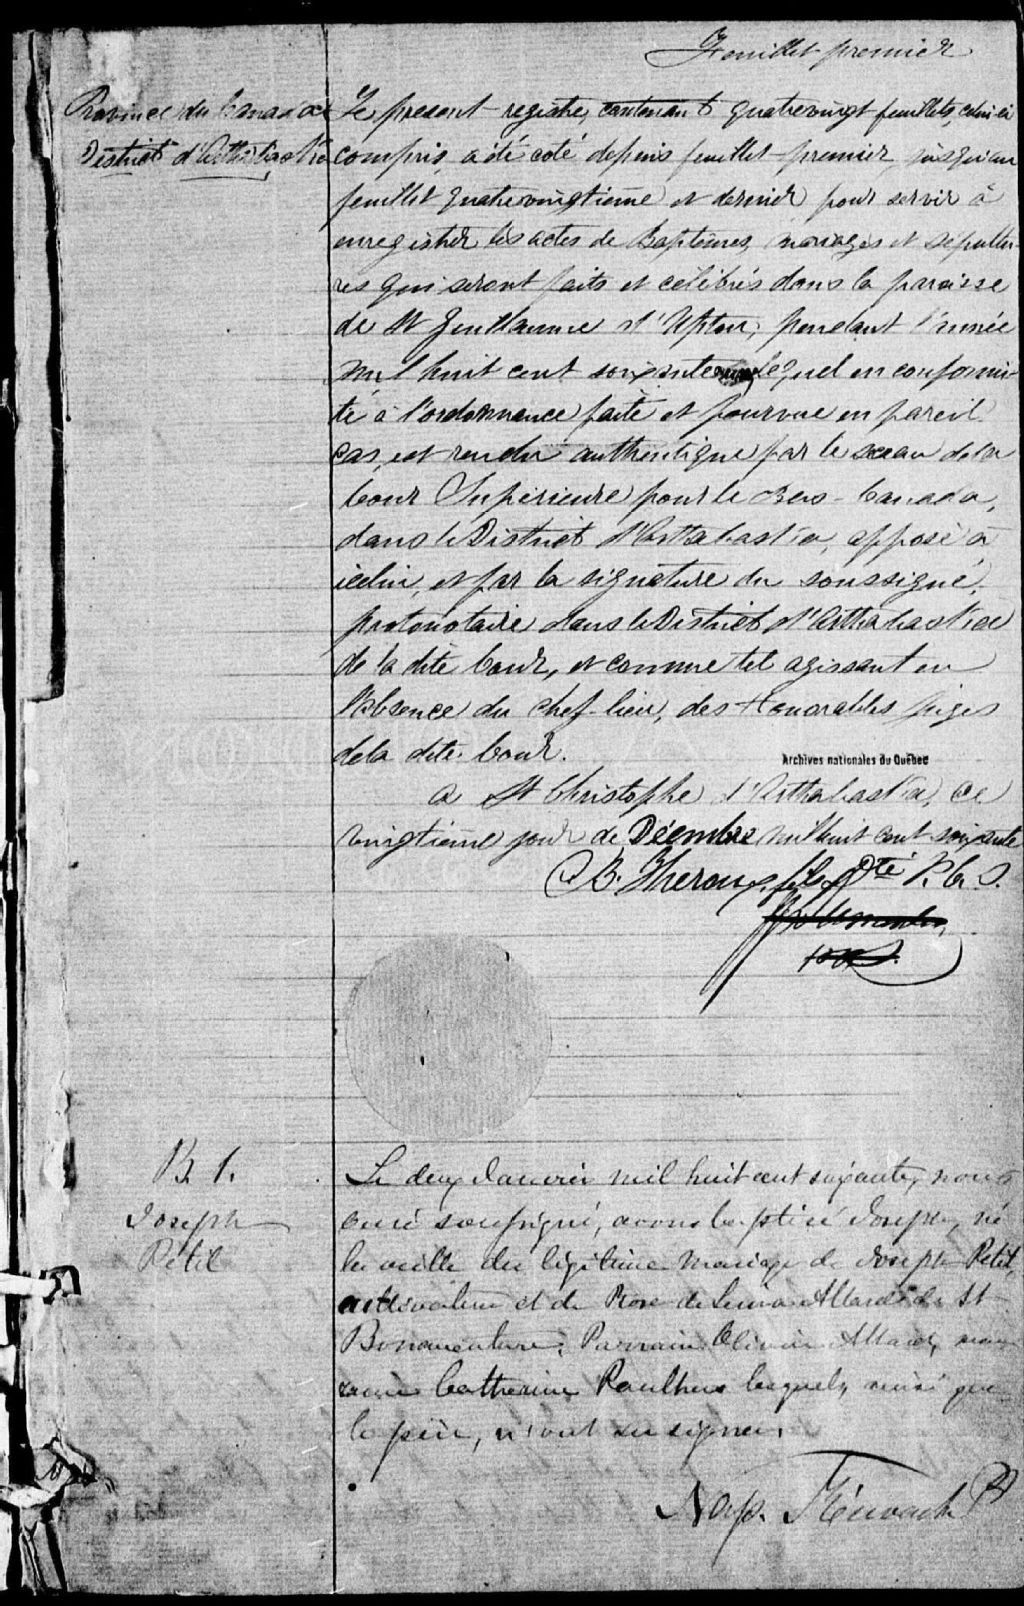 Feuillet premier
Province du Canada
District d'Arthabaska
Le present registre, contenant quatrevingt feuillets, celui ci
compris, a été coté depuis feuillet premier jusqu'au
feuillet quatrevingtieme et dernier pour servir à
enregistrer les actes de Baptêmes, mariages et sépultu-
res qui seront faits et célébrés dans la paroisse
de St Guillaume d'Upton, pendant l'année
mil huit cent soixante lequel en conformi-
té à l'ordonnance faite et pourvue en pareil
cas, est rendu authentique par le sceau de la
Cour Supérieure pour le Bas-Canada,
dans le District d'Arthabaska, apposé à
icelui, et par la signature du soussigné,
protonotaire dans le District d'Arthabaska
de la dite Cour, et comme tel agissant en
l'absence du chef-lieu, des Honorables Juges
de la dite Cour.
Archives nationales du Québec
a St Christophe d'Arthabaska, ce
vingtième jour de Décembre mil huit cent soixante
B. Theroux fils Dté P. C. S.
B. 1.
Joseph
Petit
Le deux Janvier mil huit cent soixante, nous
curé soussigné, avons baptisé Joseph, né
la veille du légitime mariage de Joseph Petit,
cultivateur et de Rose de Lima Allard de St
Bonaventure. Parrain Olivier Allard, mar-
raine Catherine Paulhus lesquels, ainsi que
le père, n'ont su signer.
Nap. Kéroack Ptr